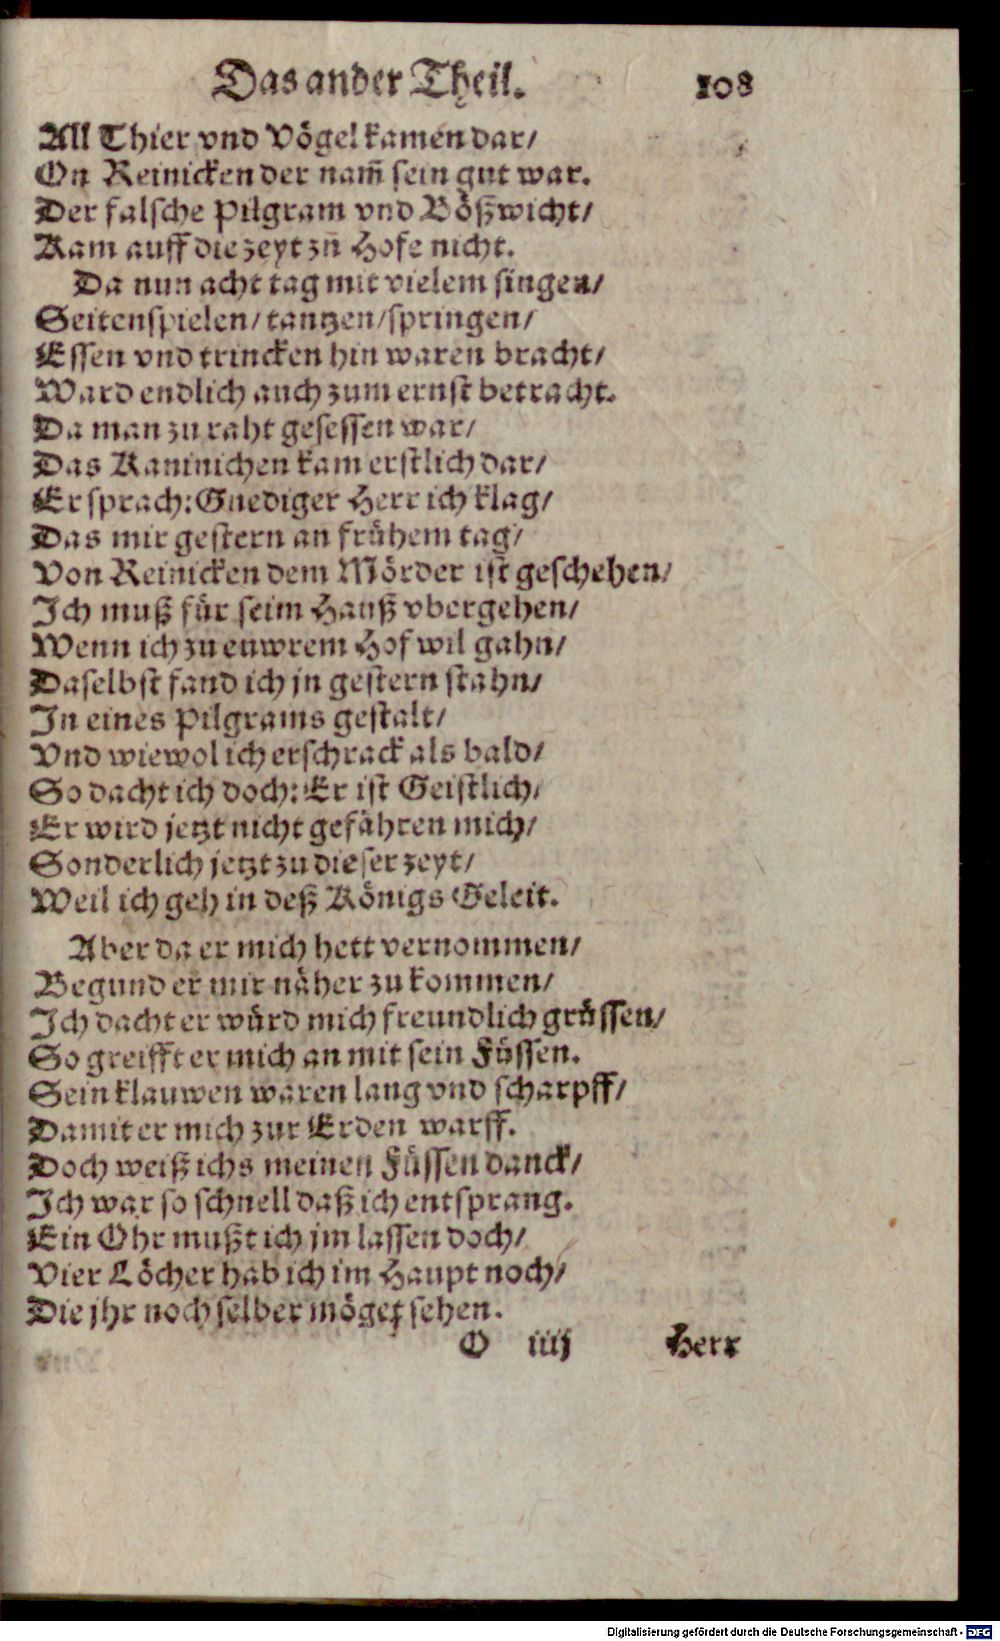 Das ander Theil. 108
All Thier vnd Vögel kamen dar/
On Reinicken der nam̃ sein gut war.
Der falsche Pilgram vnd Bößwicht/
Kam auff die zeyt zũ Hofe nicht.
Da nun acht tag mit vielem singen/
Seitenspielen/ tantzen/ springen/
Essen vnd trincken hin waren bracht/
Ward endlich auch zum ernst betracht.
Da man zu raht gesessen war/
Das Kaninichen kam erstlich dar/
Er sprach: Gnediger Herr ich klag/
Das mir gestern an frühem tag/
Von Reinicken dem Mörder ist geschehen/
Ich muß für seim Hauß vbergehen/
Wenn ich zu euwrem Hof wil gahn/
Daselbst fand ich jn gestern stahn/
In eines Pilgrams gestalt/
Vnd wiewol ich erschrack als bald/
So dacht ich doch: Er ist Geistlich/
Er wird jetzt nicht gefähren mich/
Sonderlich jetzt zu dieser zeyt/
Weil ich geh in deß Königs Geleit.
Aber da er mich hett vernommen/
Begund er mir näher zu kommen/
Ich dacht er würd mich freundlich grüssen/
So greifft er mich an mit sein Füssen.
Sein klauwen waren lang vnd scharpff/
Damit er mich zur Erden warff.
Doch weiß ichs meinen Füssen danck/
Ich war so schnell daß ich entsprang.
Ein Ohr mußt ich jm lassen doch/
Vier Löcher hab ich im Haupt noch/
Die jhr noch selber möget sehen.
O iiij Herr
Digitalisierung gefördert durch die Deutsche Forschungsgemeinschaft - DFG